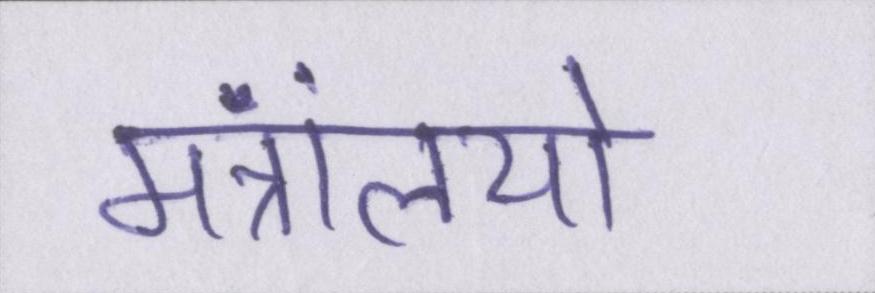 मंत्रांलयो